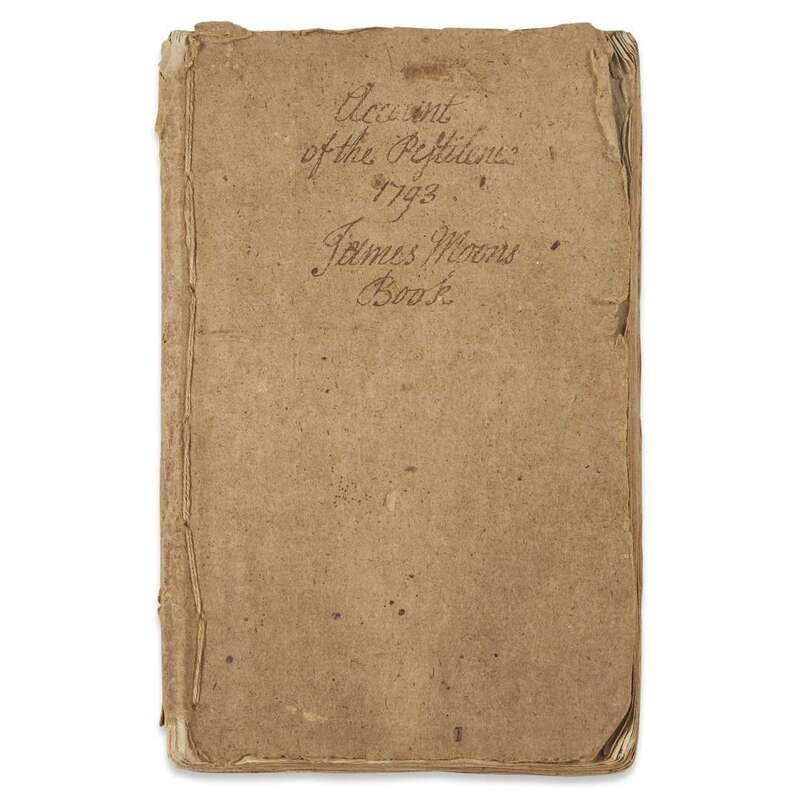 Account
of the Pestilence
1793
James Moons
Book